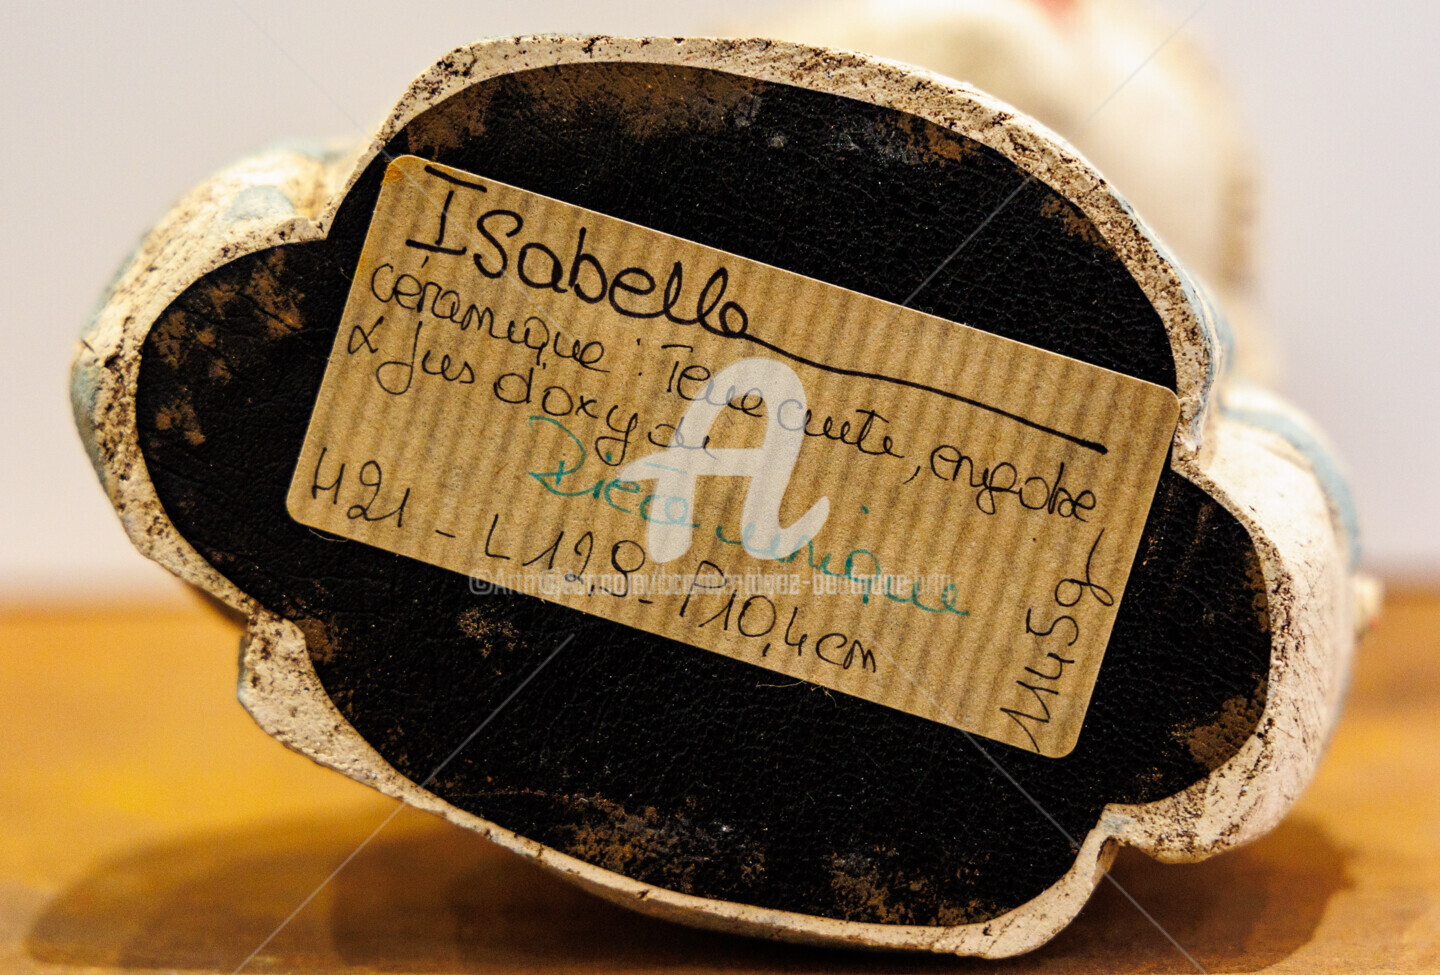 Isabelle
céramique : Terre cuite, engobe
& jus d'oxyde
Pièce unique
H21 - L 128 - P10,4cm
1145g